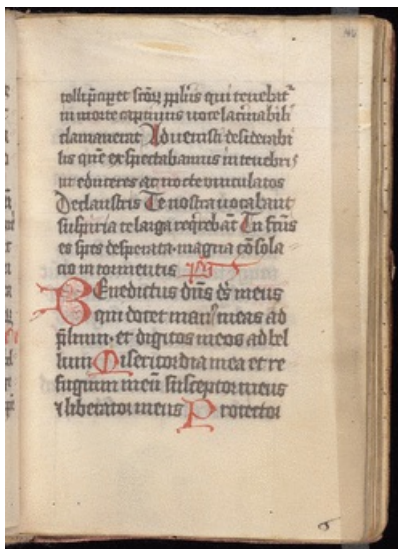 tolli p̄cip̄et sc̄oꝝ pp̄lus qui tenebat᷑
in morte captiuus uoce lacrimabili
clamauerat Aduenisti desiderabi
lis quē expectabamus in tenebris
ut educeres ac nocte uinculatos
De claustris Te nostra uocabant
suspiria te larga reqͥrebāt Tu fc̄us
es spes desperata magna cōsola
cio in tormentis ps̄
BEnedictus dn̄s ds̄ meus
qui docet manꝰ meas ad
p̄lium et digitos meos ad bel
lum Misericordia mea et re
fugium meū susceptor meus
⁊ liberator meus Protector